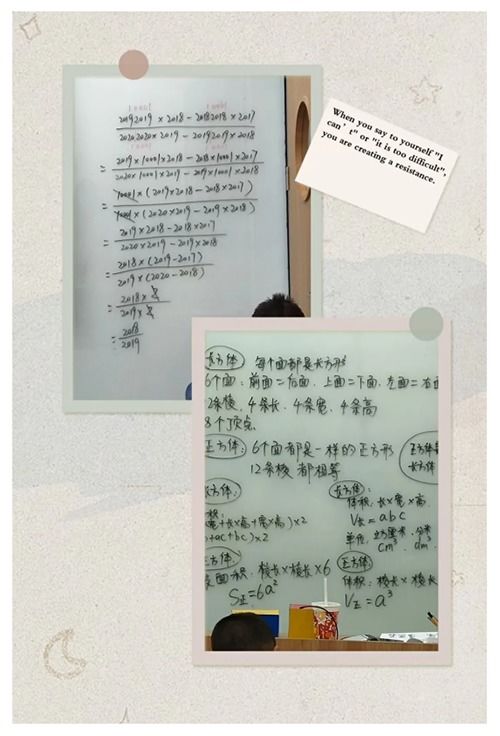 10001 10001
20192019 × 2018 − 20182018 × 2017
20202020 × 2019 − 20192019 × 2018
10001 10001
= 2019×10001×2018 − 2018×10001×2017
2020×10001×2019 − 2019×10001×2018
= 10001×(2019×2018−2018×2017)
10001×(2020×2019−2019×2018)
= 2019×2018−2018×2017
2020×2019−2019×2018
= 2018×(2019−2017)
2019×(2020−2018)
= 2018×2
2019×2
= 2018
2019
When you say to yourself "I
can't" or "it is too difficult",
you are creating a resistance.
长方体 每个面都是长方形
6个面:前面=后面.上面=下面.左面=右面
12条棱,4条长.4条宽.4条高
8个顶点
正方体:6个面都是一样的正方形
12条棱都相等
正方体是
长方体
长方体:
积:
宽+长×高+宽×高)×2
+ac+bc)×2
长方体:
体积:长×宽×高
V长=abc
单位:立方厘米.分米
cm³. dm³
正方体:
表面积:棱长×棱长×6
S正=6a²
正方体:
体积:棱长×棱长
V正=a³